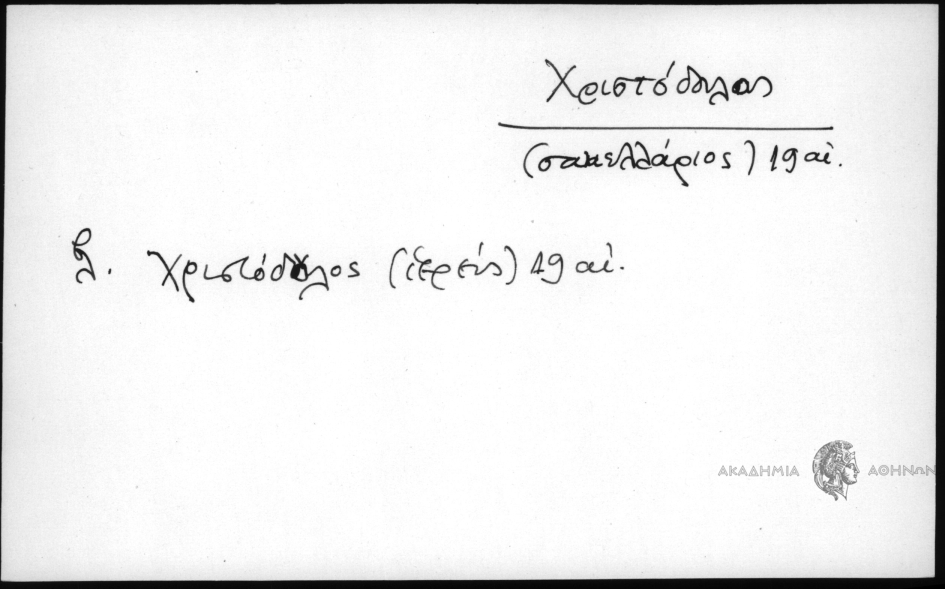 Χριστόδουλος
(σακελλάριος) 19 αἰ.
βλ. Χριστόδουλος (ἱερεύς) 19 αἰ.
ΑΚΑΔΗΜΙΑ ΑΘΗΝΩΝ